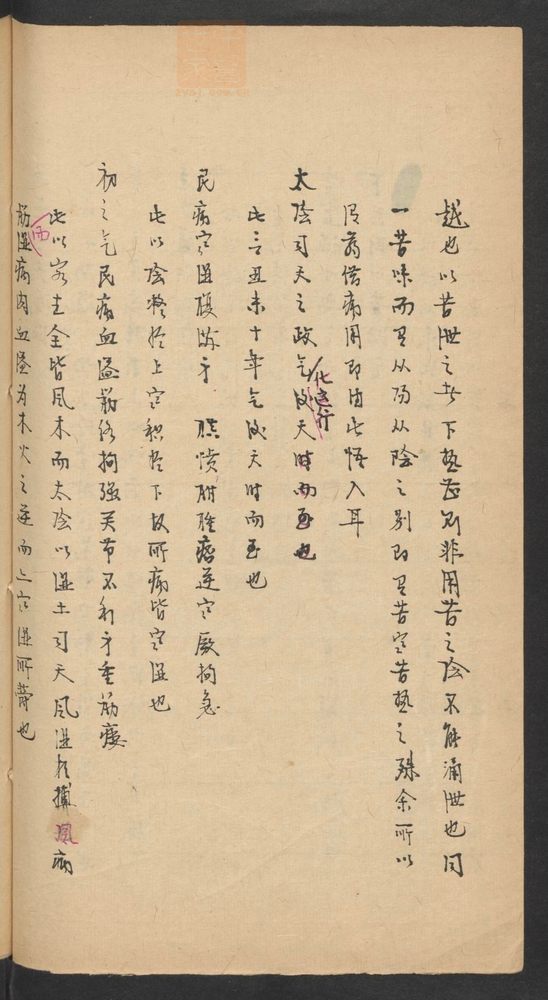 越也以苦泄之者下熱證則非用苦之陰不能涌泄也同
一苦味而有从陽从陰之別即有苦寒苦熱之殊余所以
治病用即由此悟入耳
太陰司天之政气化运行天時而至也
此言丑未十年气後天时而至也
民病寒湿腹满身䐜愤胕肿痞逆寒厥拘急
此以陰凝於上寒积於下故所病皆寒湿也
初之气民病血溢筋络拘强关节不利身重筋痿
此以客主全皆风木而太陰以湿土司天风湿相搏风病
筋湿病肉血溢为木火之逆而亠寒湿所郁也